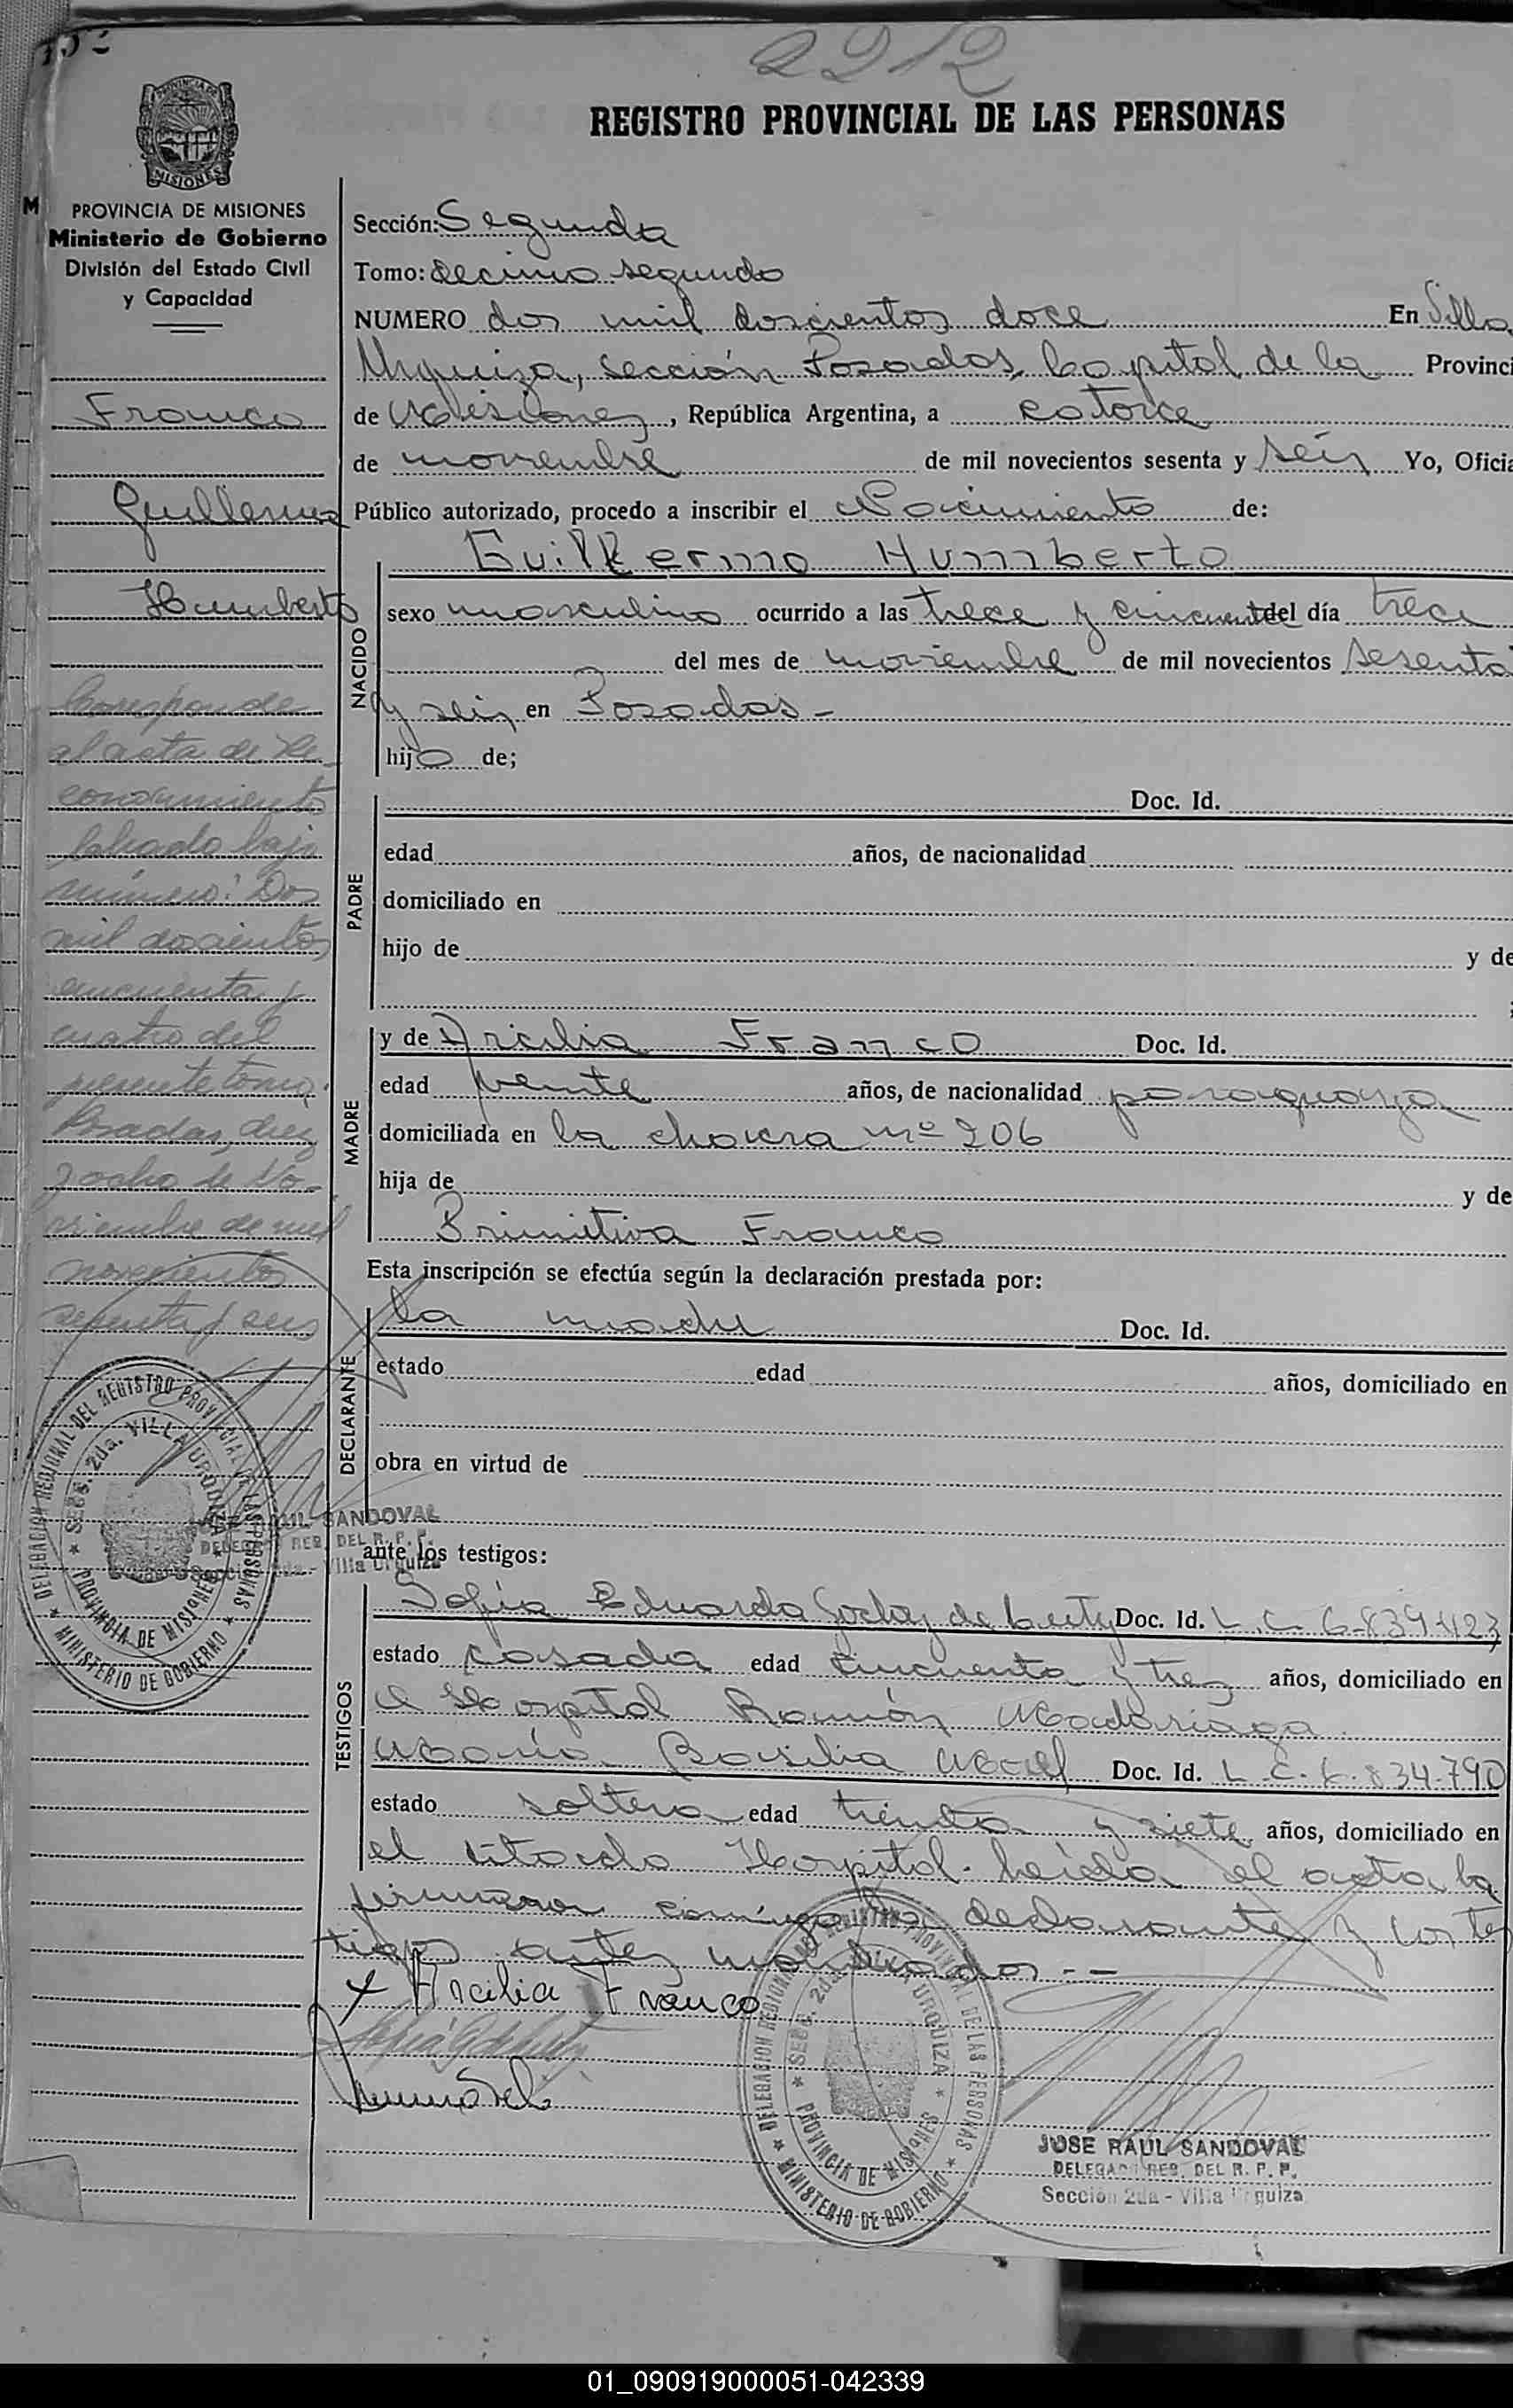 2212
REGISTRO PROVINCIAL DE LAS PERSONAS
PROVINCIA DE MISIONES
MISIONES
M
PROVINCIA DE MISIONES
Ministerio de Gobierno
División del Estado Civil
y Capacidad
Franco
Guillermo
Humberto
Corresponde
al acta de Re-
conocimiento
labrado bajo
número: Dos
mil doscientos
cincuenta y
cuatro del
presente tomo.
Posadas, diez
y ocho de No-
viembre de mil
novecientos
sesenta y seis
Sección: Segunda
Tomo: decimo segundo
NUMERO dos mil doscientos doce En Villa
Urquiza, sección Posadas, Capital de la Provinci
de Misiones, República Argentina, a catorce
de noviembre de mil novecientos sesenta y seis Yo, Oficia
Público autorizado, procedo a inscribir el Nacimiento de:
Guillermo Humberto
NACIDO
sexo masculino ocurrido a las trece y cincuenta del día trece
del mes de noviembre de mil novecientos sesenta
y seis en Posadas -
hijo de;
PADRE
Doc. Id.
edad años, de nacionalidad
domiciliado en
hijo de y de
MADRE
y de Arcilia Franco Doc. Id.
edad veinte años, de nacionalidad paraguaya
domiciliada en la chacra nº 206
hija de y de
Primitiva Franco
Esta inscripción se efectúa según la declaración prestada por:
DECLARANTE
la madre Doc. Id.
estado edad años, domiciliado en
obra en virtud de
ante los testigos:
TESTIGOS
Sofia Eduarda Godoy de Doc. Id. L.C. 6.839.423
estado casada edad cincuenta y tres años, domiciliado en
el Hospital Ramón Madariaga
María Basilia Doc. Id. L.C. 6.834.790
estado soltera edad treinta y siete años, domiciliado en
el citado Hospital. Leída el acta la
firmaron conmigo la declarante y los tes
tigos antes nombrados.--
x Arcilia Franco
DELEGACION REGIONAL DEL REGISTRO PROVINCIAL DE LAS PERSONAS
SECC. 2da. VILLA URQUIZA
PROVINCIA DE MISIONES
MINISTERIO DE GOBIERNO
SANDOVAL
DEL R. P. P.
Villa Urquiza
DELEGACION REGIONAL DEL REGISTRO PROVINCIAL DE LAS PERSONAS
SECC. 2da. VILLA URQUIZA
PROVINCIA DE MISIONES
MINISTERIO DE GOBIERNO
JOSE RAUL SANDOVAL
DELEGADO REG. DEL R. P. P.
Sección 2da - Villa Urquiza
01_090919000051-042339